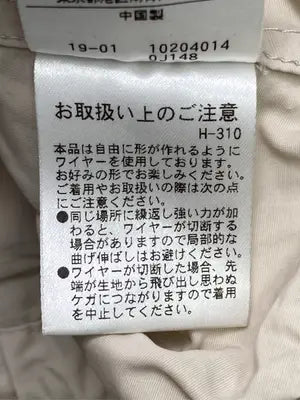 中国製
19-01 10204014
0J148
お取扱い上のご注意
H-310
本品は自由に形が作れるように
ワイヤーを使用しております。
お好みの形でお楽しみください。
ご着用やお取扱いの際は次の点
にご注意ください。
●同じ場所に繰返し強い力が加
わると、ワイヤーが切断する
場合がありますので局部的な
曲げ伸ばしはお避けください。
●ワイヤーが切断した場合、先
端が生地から飛び出し思わぬ
ケガにつながりますので着用
を中止してください。